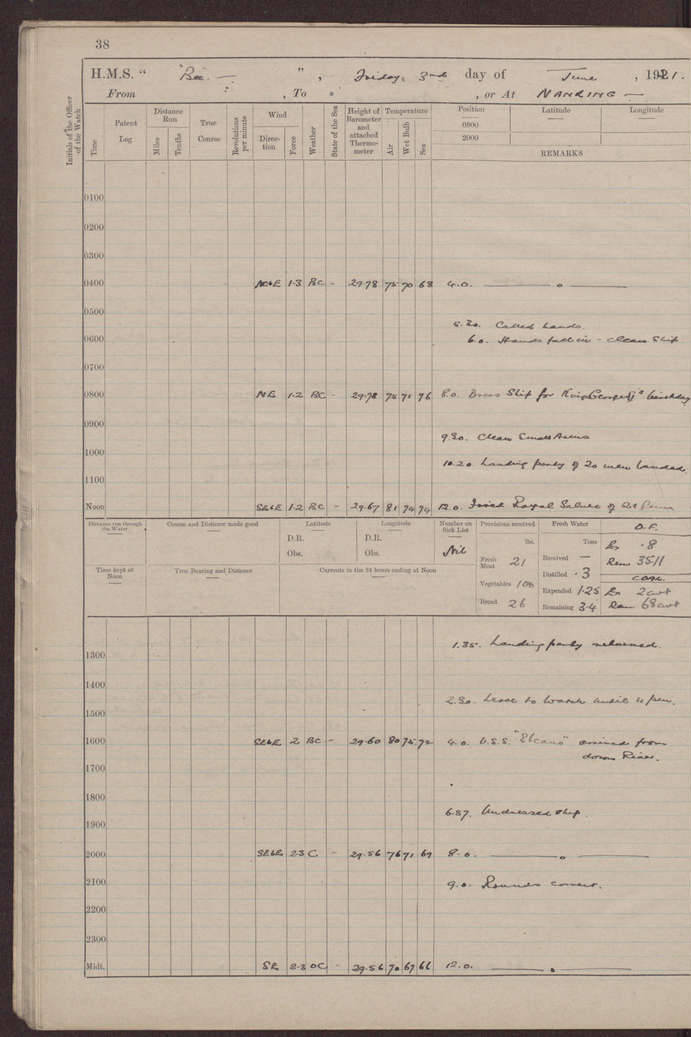 38
H.M.S. " Bee. — " , Friday, 3rd day of June , 1921.
From , To , or At NANKING —
Initials of the Officer of the Watch
Time
Patent Log
Distance Run
Miles
Tenths
True Course
Revolutions per minute
Wind
Direction
Force
Weather
State of the Sea
Height of Barometer and attached Thermometer
Temperature
Air
Wet Bulb
Sea
Position Latitude Longitude
0800
2000
REMARKS
0100
0200
0300
0400 NE 1·3 BC - 29·78 75 70 68 4.0. — " —
0500
5.30. Called hands.
0600 6.0. Hands fall in - clean Ship
0700
0800 NE 1·2 BC - 29·78 75 71 76 8.0. Dress Ship for King George V's birthday
0900
9.30. Clean Small Arms
1000
10.20 Landing party of 20 men landed
1100
Noon SE 1·2 BC - 29·67 81 74 74 12.0. Royal Salute of 21 Guns
Distance run through the Water
Course and Distance made good
Latitude
D.R.
Obs.
Longitude
D.R.
Obs.
Number on Sick List
Nil
Provisions received
lbs.
Fresh Meat 21
Vegetables 106
Bread 26
Fresh Water
Tons
Received —
Distilled ·3
Expended 1·25
Remaining 3·4
O.F.
Ex ·8
Rem 35·11
COAL
Ex 2 cwt
Rem 68 cwt
Time kept at Noon
True Bearing and Distance
Currents in the 24 hours ending at Noon
1.35. Landing party returned.
1300
1400
2.30. Leave to Watch until 11 p.m.
1500
1600 SE 2 BC - 29·60 80 75 72 4.0. U.S.S. "Elcano" arrived from
down River.
1700
1800
6.57. Undressed ship.
1900
2000 SE 2·3 C - 29·56 76 71 69 8.0. — " —
2100 9.0. Rounds correct.
2200
2300
Midt. SE 2·3 OC - 29·56 70 67 66 12.0. — " —